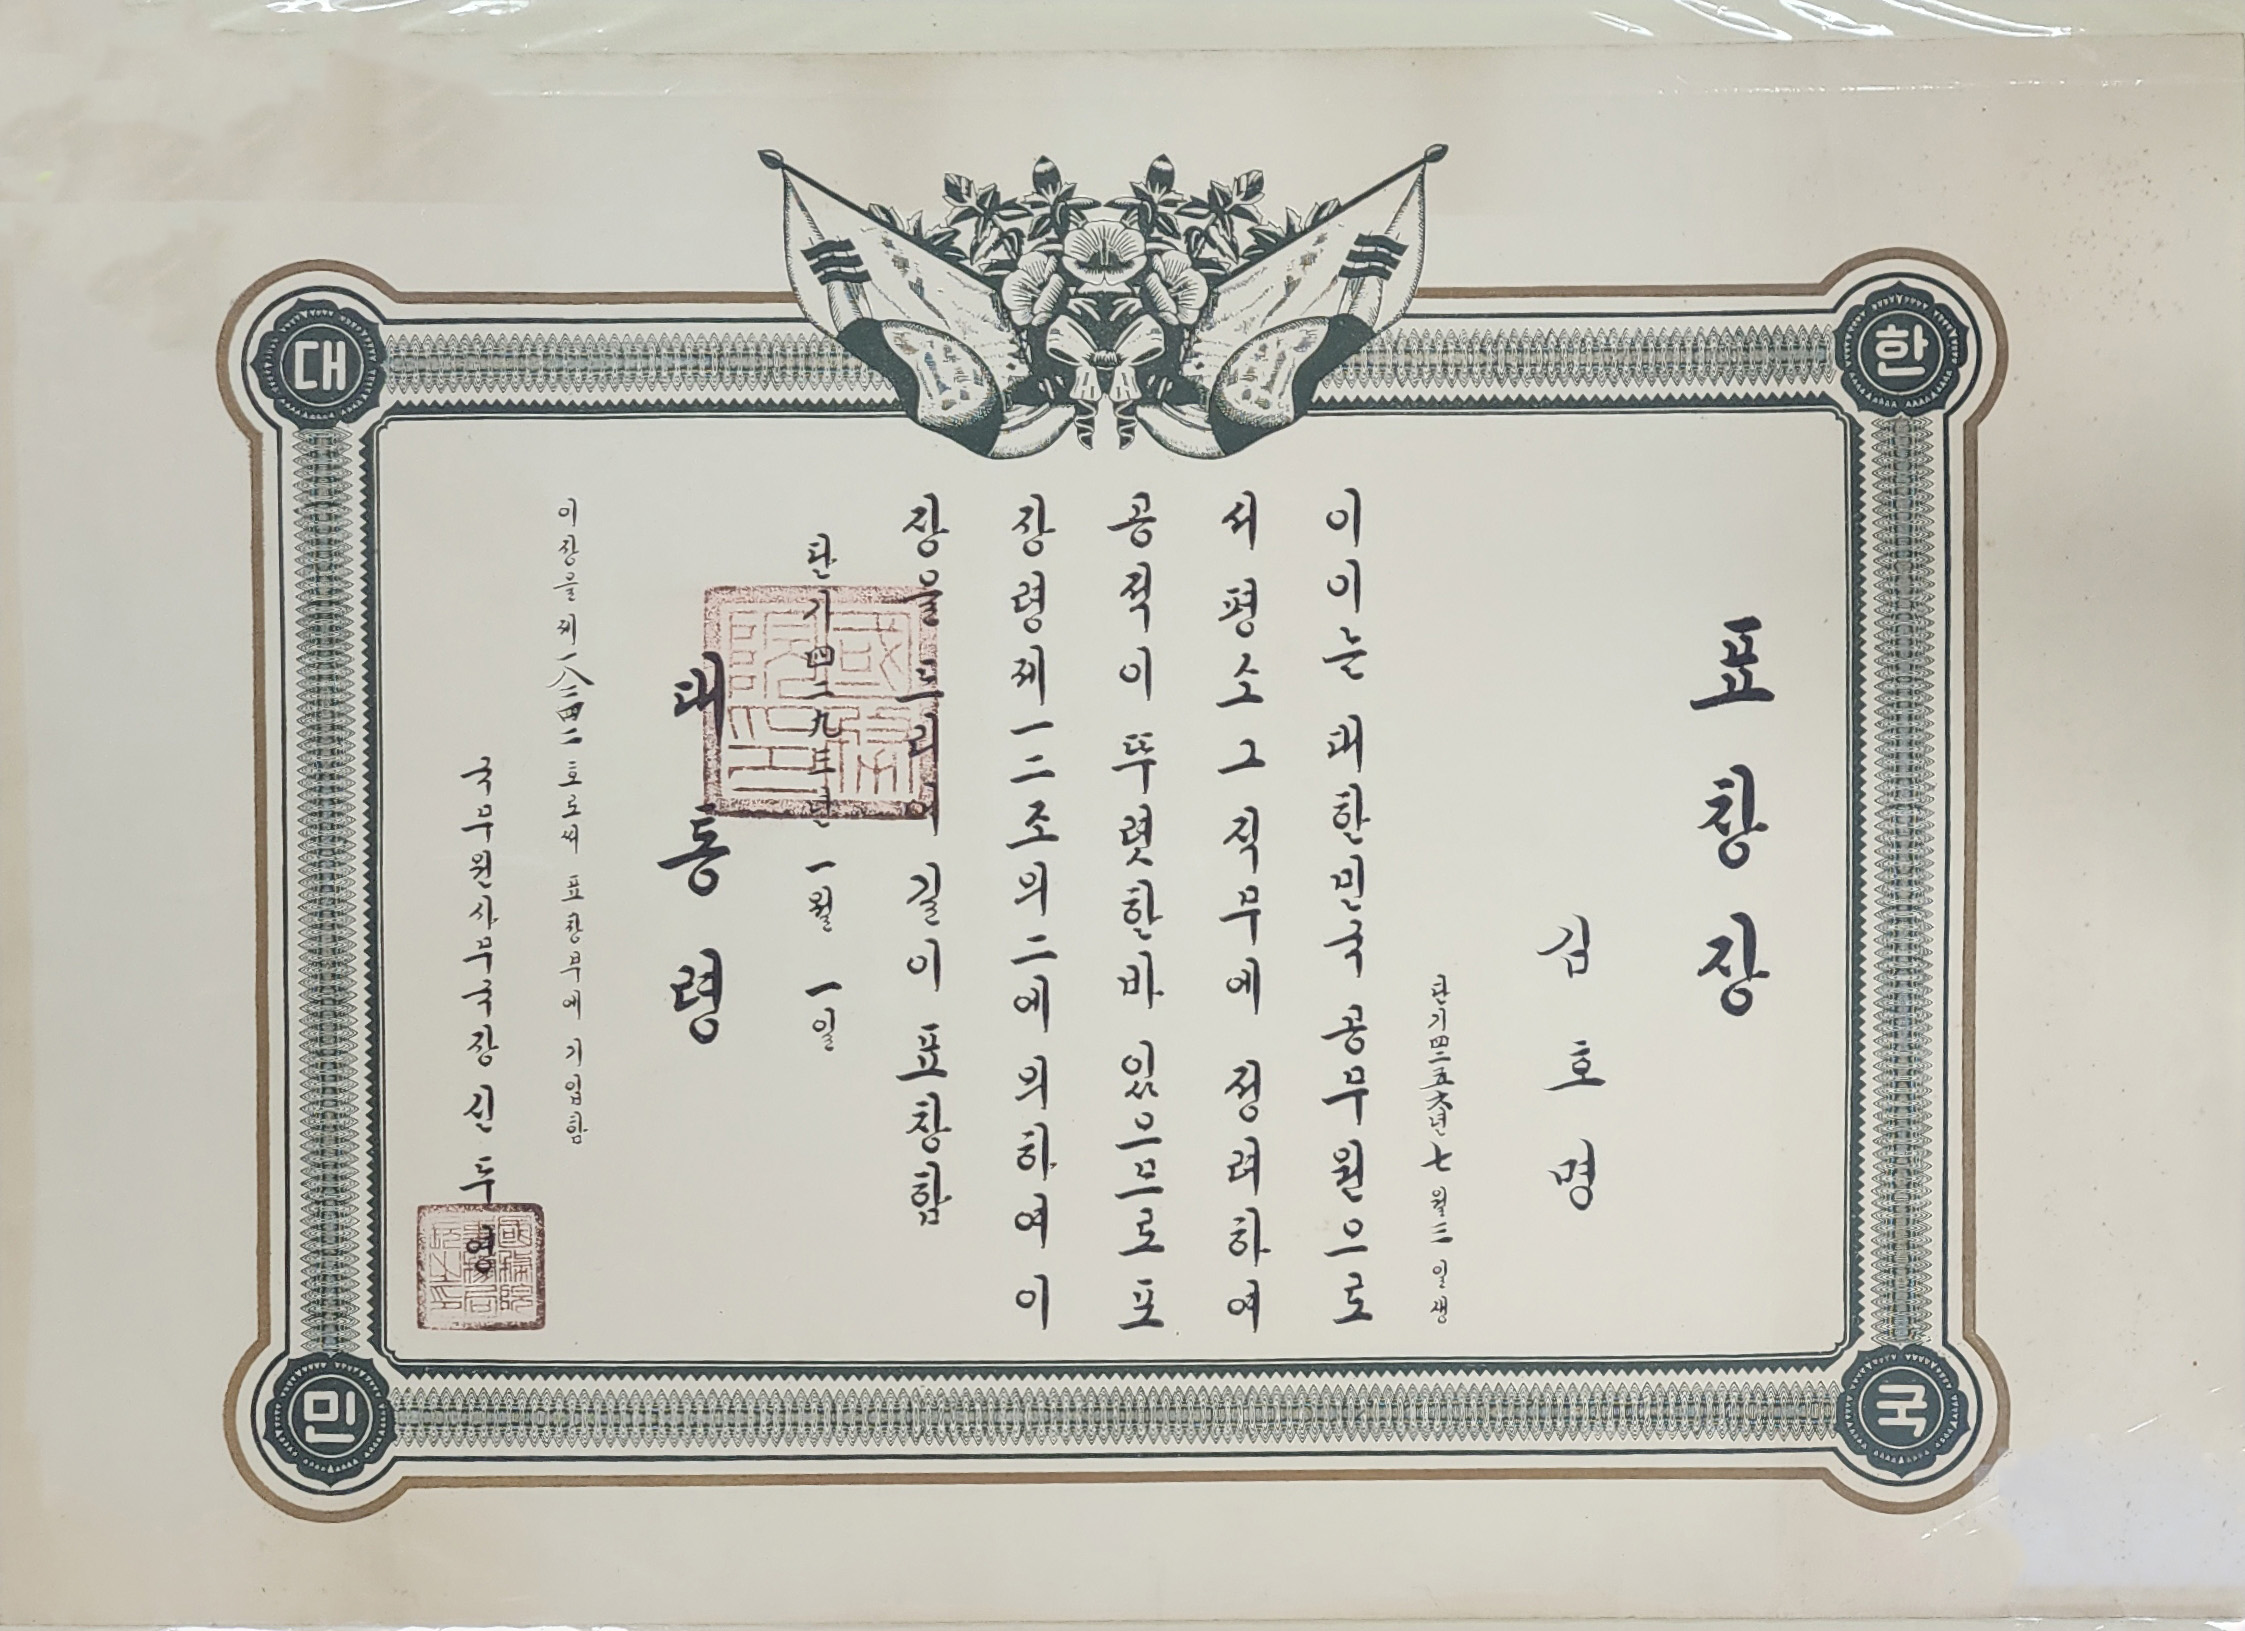 대 한
표창장
김호명
단기四二五六년 七월 三일생
이이는 대한민국 공무원으로
서 평소 그 직무에 정려하여
공적이 뚜렷한바 있으므로 포
장령제一二조의二에 의하여 이
장을 드리어 길이 표창함
단기四二九三년 一월 一일
대통령
國務
院印
이장을 제一八二四二호로써 표창부에 기입함
국무원사무국장 신두영
國務院
事務局
민 국